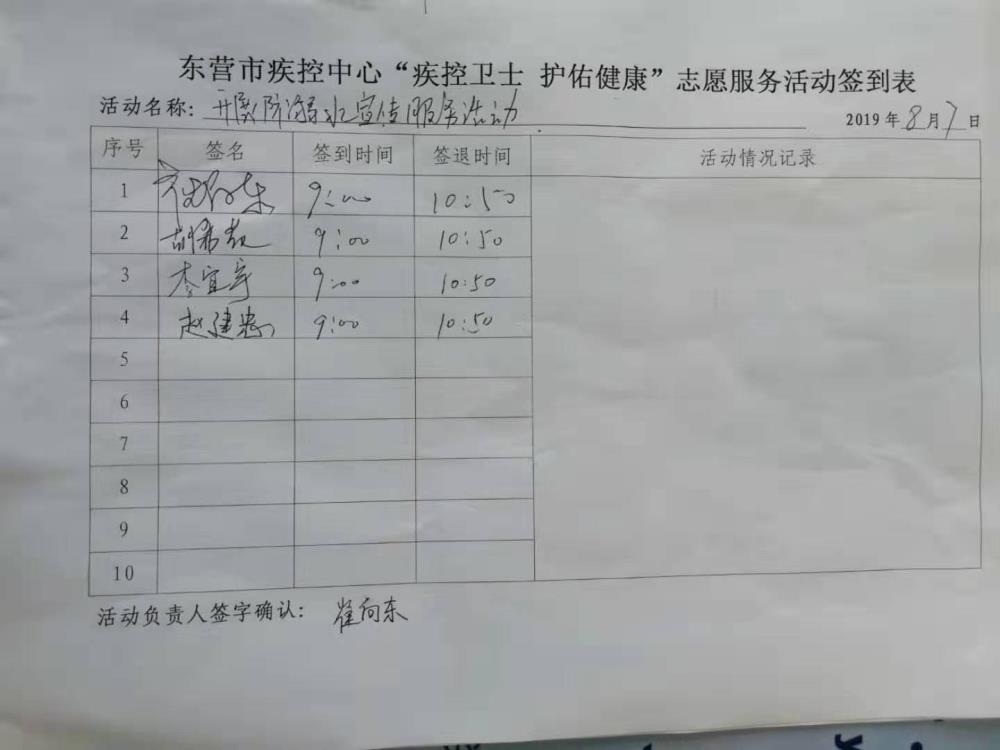 东营市疾控中心“疾控卫士 护佑健康”志愿服务活动签到表
活动名称：开展防溺水宣传服务活动 2019年8月7日
序号 签名 签到时间 签退时间 活动情况记录
1 9:00 10:50
2 9:00 10:50
3 李宜宁 9:00 10:50
4 赵建忠 9:00 10:50
5
6
7
8
9
10
活动负责人签字确认： 崔向东